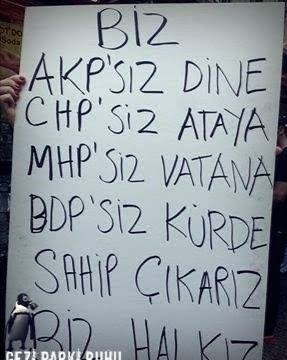 BİZ
AKP'SIZ DİNE
CHP'SiZ ATAYA
MHP'SiZ VATANA
BDP'SiZ KÜRDE
SAHİP ÇIKARIZ
BİZ HALKIZ
GEZİ PARKI RUHU